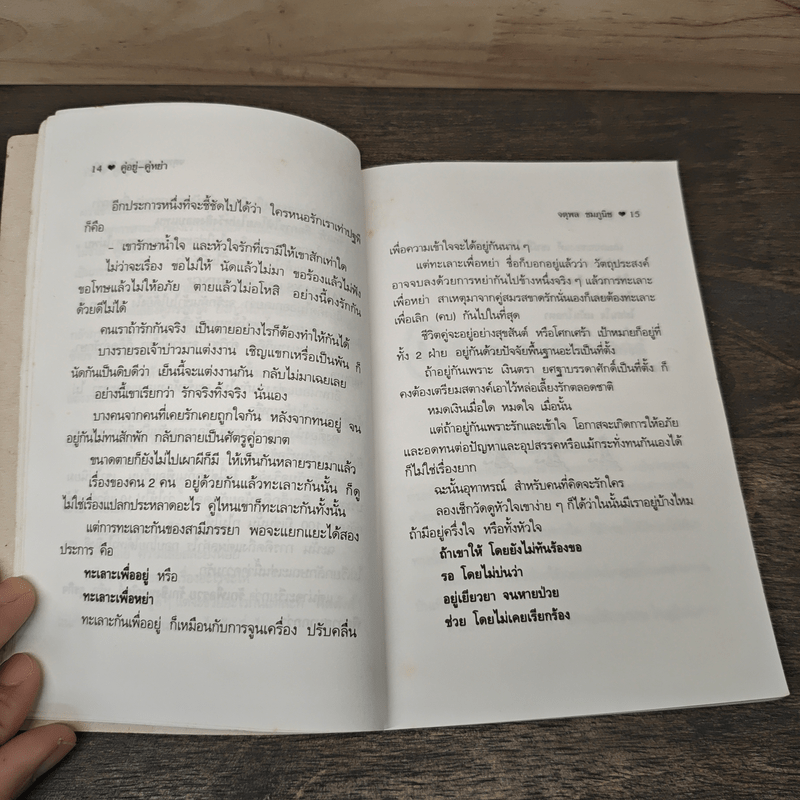 14 ❤ คู่อยู่-คู่หย่า
อีกประการหนึ่งที่จะชี้ชัดไปได้ว่า ใครหนอรักเราเท่าปฐพี
ก็คือ
- เขารักษาน้ำใจ และหัวใจรักที่เรามีให้เขาสักเท่าใด
ไม่ว่าจะเรื่อง ขอไม่ให้ นัดแล้วไม่มา ขอร้องแล้วไม่ฟัง
ขอโทษแล้วไม่ให้อภัย ตายแล้วไม่อโหสิ อย่างนี้คงรักกัน
ด้วยดีไม่ได้
คนเราถ้ารักกันจริง เป็นตายอย่างไรก็ต้องทำให้กันได้
บางรายรอเจ้าบ่าวมาแต่งงาน เชิญแขกเหรื่อเป็นพัน ก็
นัดกันเป็นดิบดีว่า เย็นนี้จะแต่งงานกัน กลับไม่มาเฉยเลย
อย่างนี้เขาเรียกว่า รักจริงทิ้งจริง นั่นเอง
บางคนจากคนที่เคยรักเคยถูกใจกัน หลังจากทนอยู่ จน
อยู่กันไม่ทนสักพัก กลับกลายเป็นศัตรูคู่อาฆาต
ขนาดตายก็ยังไม่ไปเผาผีก็มี ให้เห็นกันหลายรายมาแล้ว
เรื่องของคน 2 คน อยู่ด้วยกันแล้วทะเลาะกันนั้น ก็ดู
ไม่ใช่เรื่องแปลกประหลาดอะไร คู่ไหนเขาก็ทะเลาะกันทั้งนั้น
แต่การทะเลาะกันของสามีภรรยา พอจะแยกแยะได้สอง
ประการ คือ
ทะเลาะเพื่ออยู่ หรือ
ทะเลาะเพื่อหย่า
ทะเลาะกันเพื่ออยู่ ก็เหมือนกับการจูนเครื่อง ปรับคลื่น
จตุพล ชมภูนิช ❤ 15
เพื่อความเข้าใจจะได้อยู่กันนาน ๆ
แต่ทะเลาะเพื่อหย่า ชื่อก็บอกอยู่แล้วว่า วัตถุประสงค์
อาจจบลงด้วยการหย่ากันไปข้างหนึ่งจริง ๆ แล้วการทะเลาะ
เพื่อหย่า สาเหตุมาจากคู่สมรสขาดรักนั่นเองก็เลยต้องทะเลาะ
เพื่อเลิก (คบ) กันไปในที่สุด
ชีวิตคู่จะอยู่อย่างสุขสันต์ หรือโศกเศร้า เป้าหมายก็อยู่ที่
ทั้ง 2 ฝ่าย อยู่กันด้วยปัจจัยพื้นฐานอะไรเป็นที่ตั้ง
ถ้าอยู่กันเพราะ เงินตรา ยศฐาบรรดาศักดิ์เป็นที่ตั้ง ก็
คงต้องเตรียมสตางค์เอาไว้หล่อเลี้ยงรักตลอดชาติ
หมดเงินเมื่อใด หมดใจ เมื่อนั้น
แต่ถ้าอยู่กันเพราะรักและเข้าใจ โอกาสจะเกิดการให้อภัย
และอดทนต่อปัญหาและอุปสรรคหรือแม้กระทั่งทนกันเองได้
ก็ไม่ใช่เรื่องยาก
ฉะนั้นอุทาหรณ์ สำหรับคนที่คิดจะรักใคร
ลองเช็กวัดดูหัวใจเขาง่าย ๆ ก็ได้ว่าในนั้นมีเราอยู่บ้างไหม
ถ้ามีอยู่ครึ่งใจ หรือทั้งหัวใจ
ถ้าเขาให้ โดยยังไม่ทันร้องขอ
รอ โดยไม่บ่นว่า
อยู่เยียวยา จนหายป่วย
ช่วย โดยไม่เคยเรียกร้อง